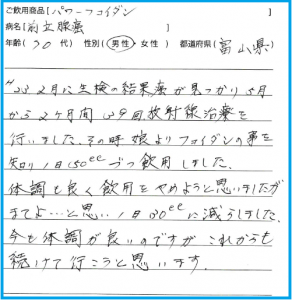 ご飲用商品[パワーフコイダン]
病名[前立腺癌]
年齢(70代) 性別(男性・女性) 都道府県(富山県)
H23 2月に生検の結果癌が見つかり5月
から2ヶ月間39回放射線治療を
行いました。その時娘よりフコイダンの事を
知り1日150ccづつ飲用しました。
体調も良く飲用をやめようと思いましたが
まてよ…と思い1日30ccに減らしました。
今も体調が良いのですがこれからも
続けて行こうと思います。